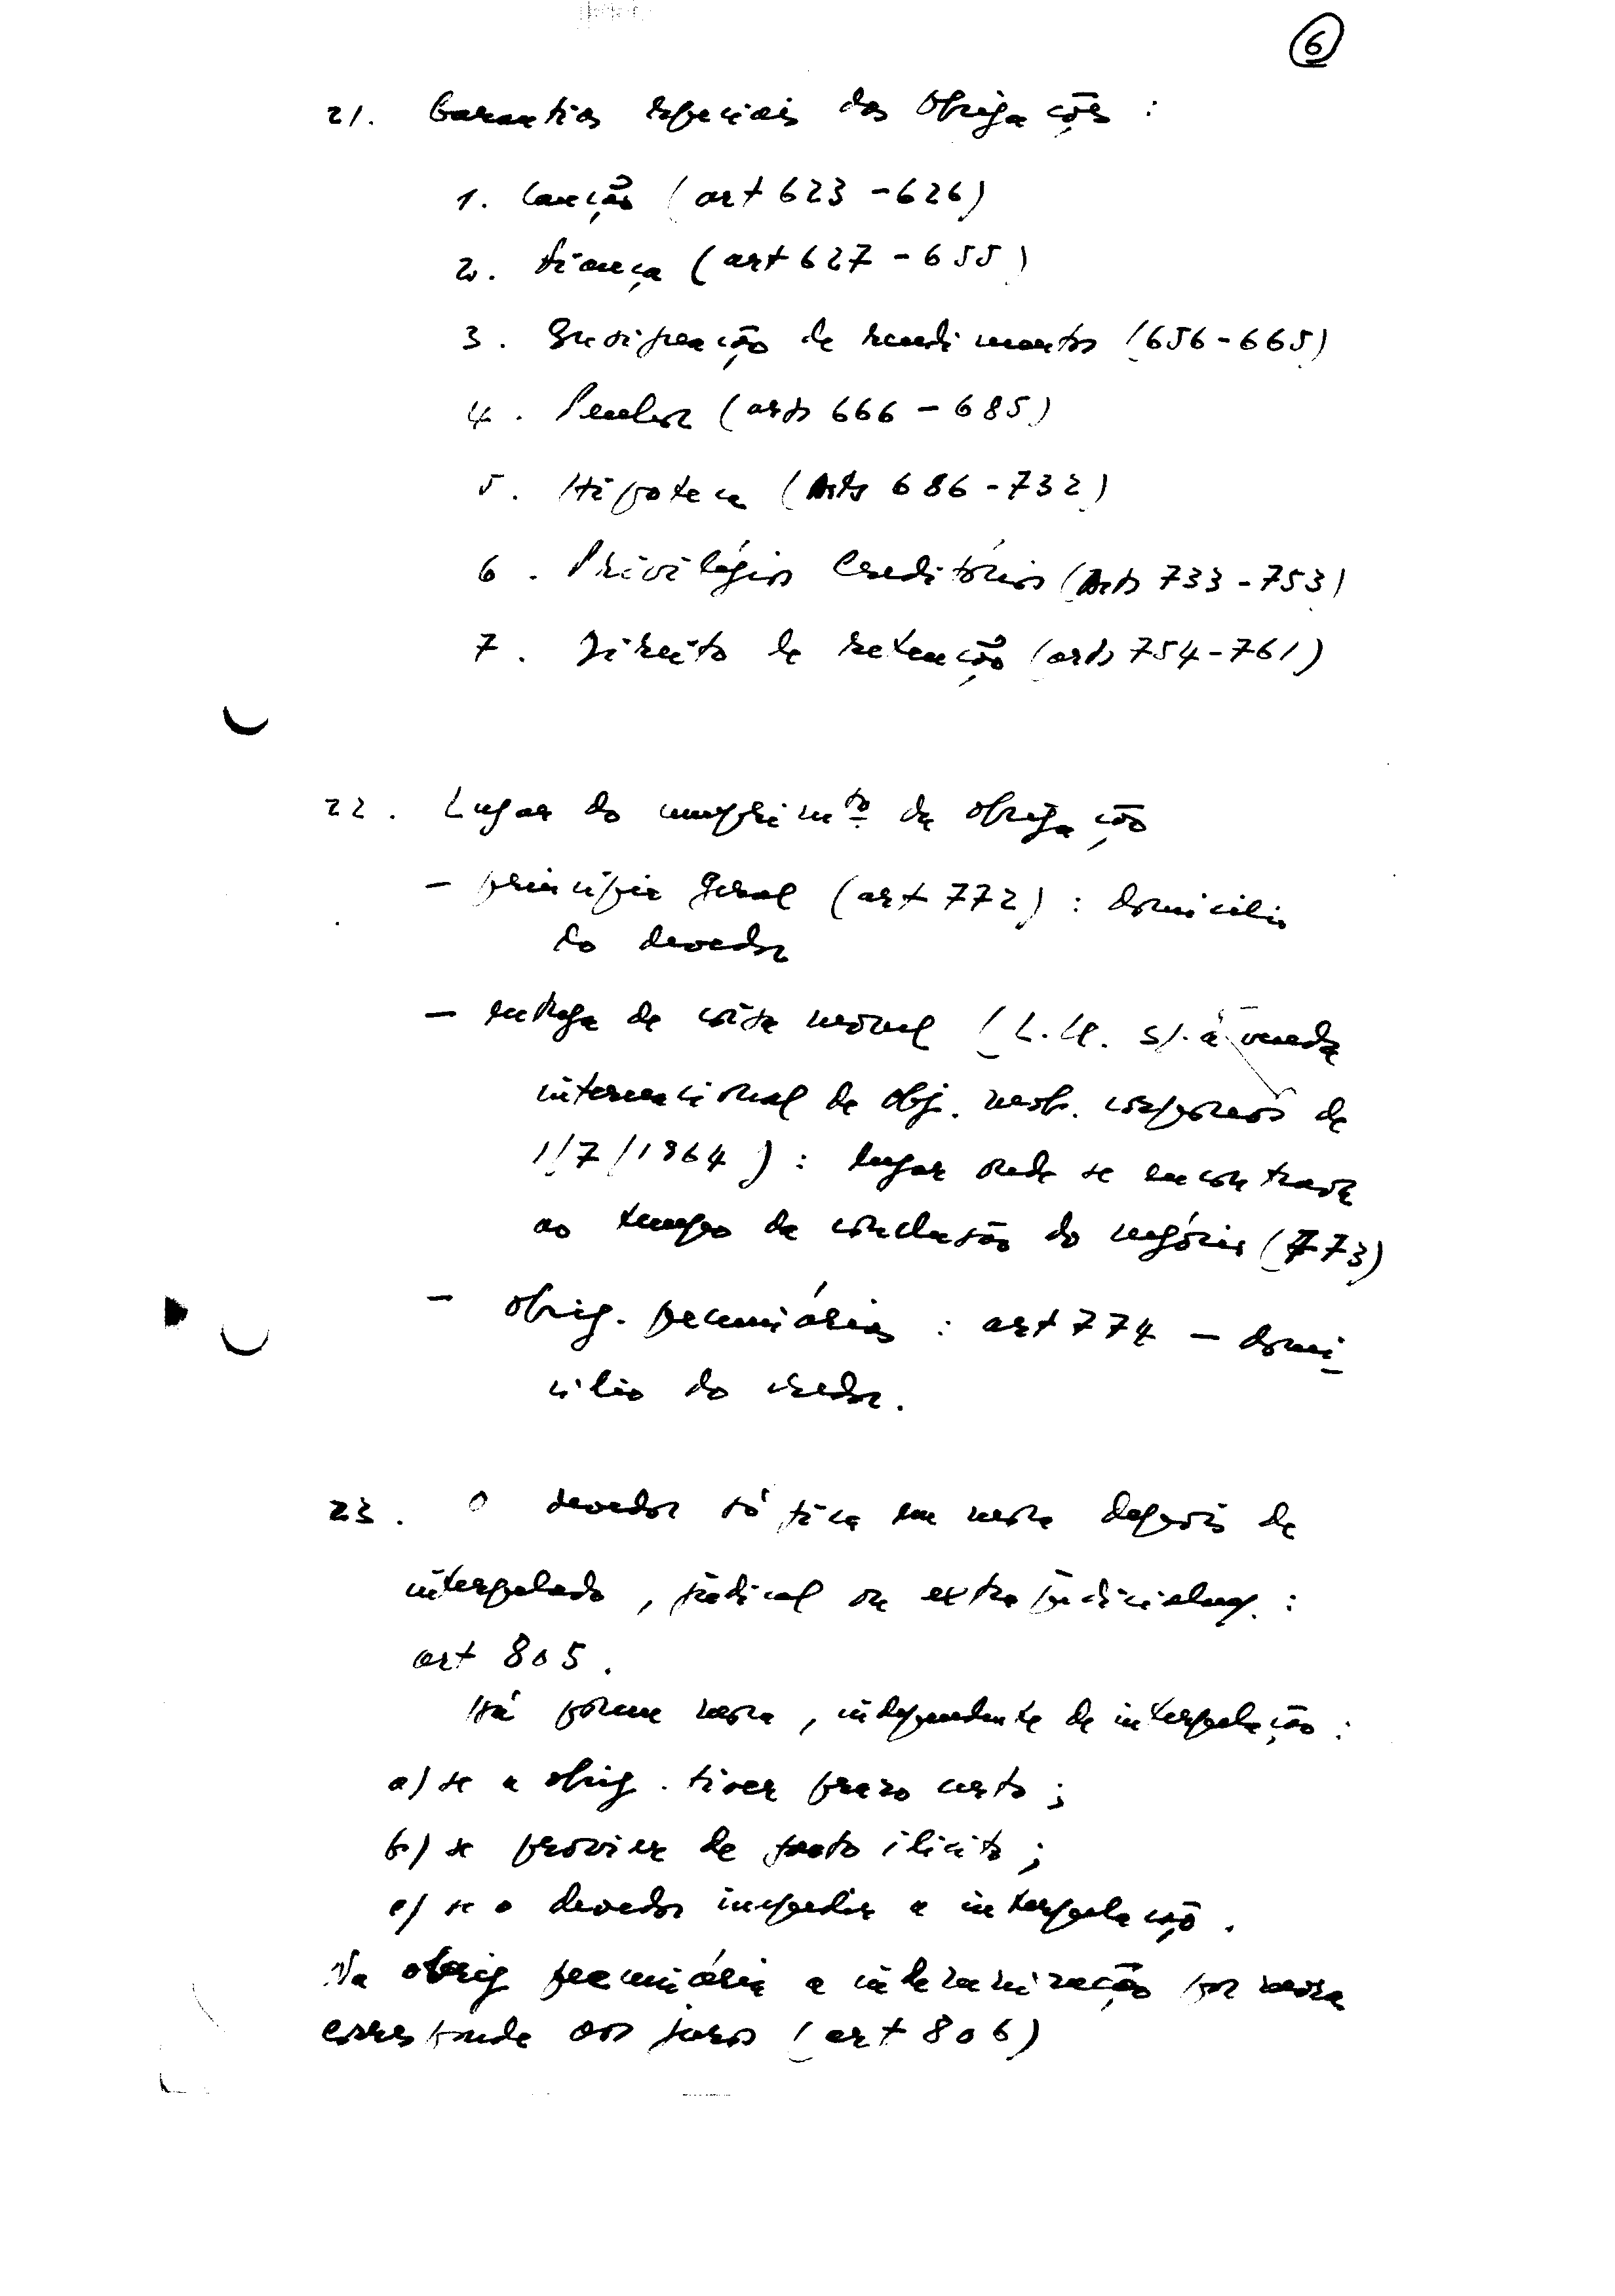 6
21. Garantias especiais das Obrigações :
1. Caução (art 623 - 626)
2. Fiança (art 627 - 655)
3. Consignação de rendimentos (656 - 665)
4. Penhor (arts 666 - 685)
5. Hipoteca (Arts 686 - 732)
6. Privilégios Creditórios (Arts 733 - 753)
7. Direito de retenção (arts 754 - 761)
22. Lugar do cumprimto da obrigação
- princípio geral (art 772) : domicilio
do devedor
- entrega de coisa móvel (L.U. s/. a venda
internacional de obj. mob. corporeos de
1/7/1964) : lugar onde se encontrava
ao tempo da conclusão do negócio (773)
- obrig. pecuniárias : art 774 - domi-
cilio do credor.
23. O devedor só fica em mora depois de
interpelado, judical ou extrajudicialmte. :
art 805.
Há porem mora, independente de interpelação :
a) se a obrig. tiver prazo certo ;
b) se provier de facto ilicito ;
c) se o devedor impedir a interpelação.
Na obrig pecuniária a indemnização por mora
corresponde aos juros (art 806)